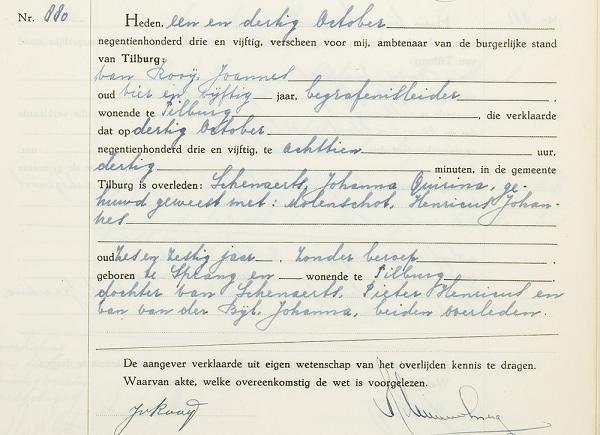 Nr. 880
Heden, een en dertig October
negentienhonderd drie en vijftig, verscheen voor mij, ambtenaar van de burgerlijke stand
van Tilburg:
van Rooij, Joannes
oud vier en vijftig jaar, begrafenisleider,
wonende te Tilburg, die verklaarde
dat op dertig October
negentienhonderd drie en vijftig, te achttien uur,
dertig minuten, in de gemeente
Tilburg is overleden: Schenaerts, Johanna Quirina, ge-
huwd geweest met: Molenschot, Henricus Johan-
nes
oud zes en zestig jaar, zonder beroep,
geboren te Sprang en wonende te Tilburg,
dochter van Schenaerts, Pieter Henricus en
van van der Bijl, Johanna, beiden overleden.
De aangever verklaarde uit eigen wetenschap van het overlijden kennis te dragen.
Waarvan akte, welke overeenkomstig de wet is voorgelezen.
JvRooij